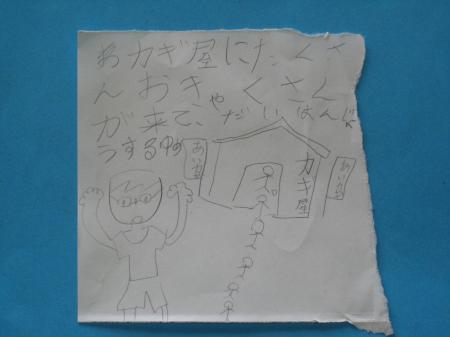 おカギ屋にたくさ
んおきゃくさん
が来て、だいはんじょ
うするゆめ
カギ屋